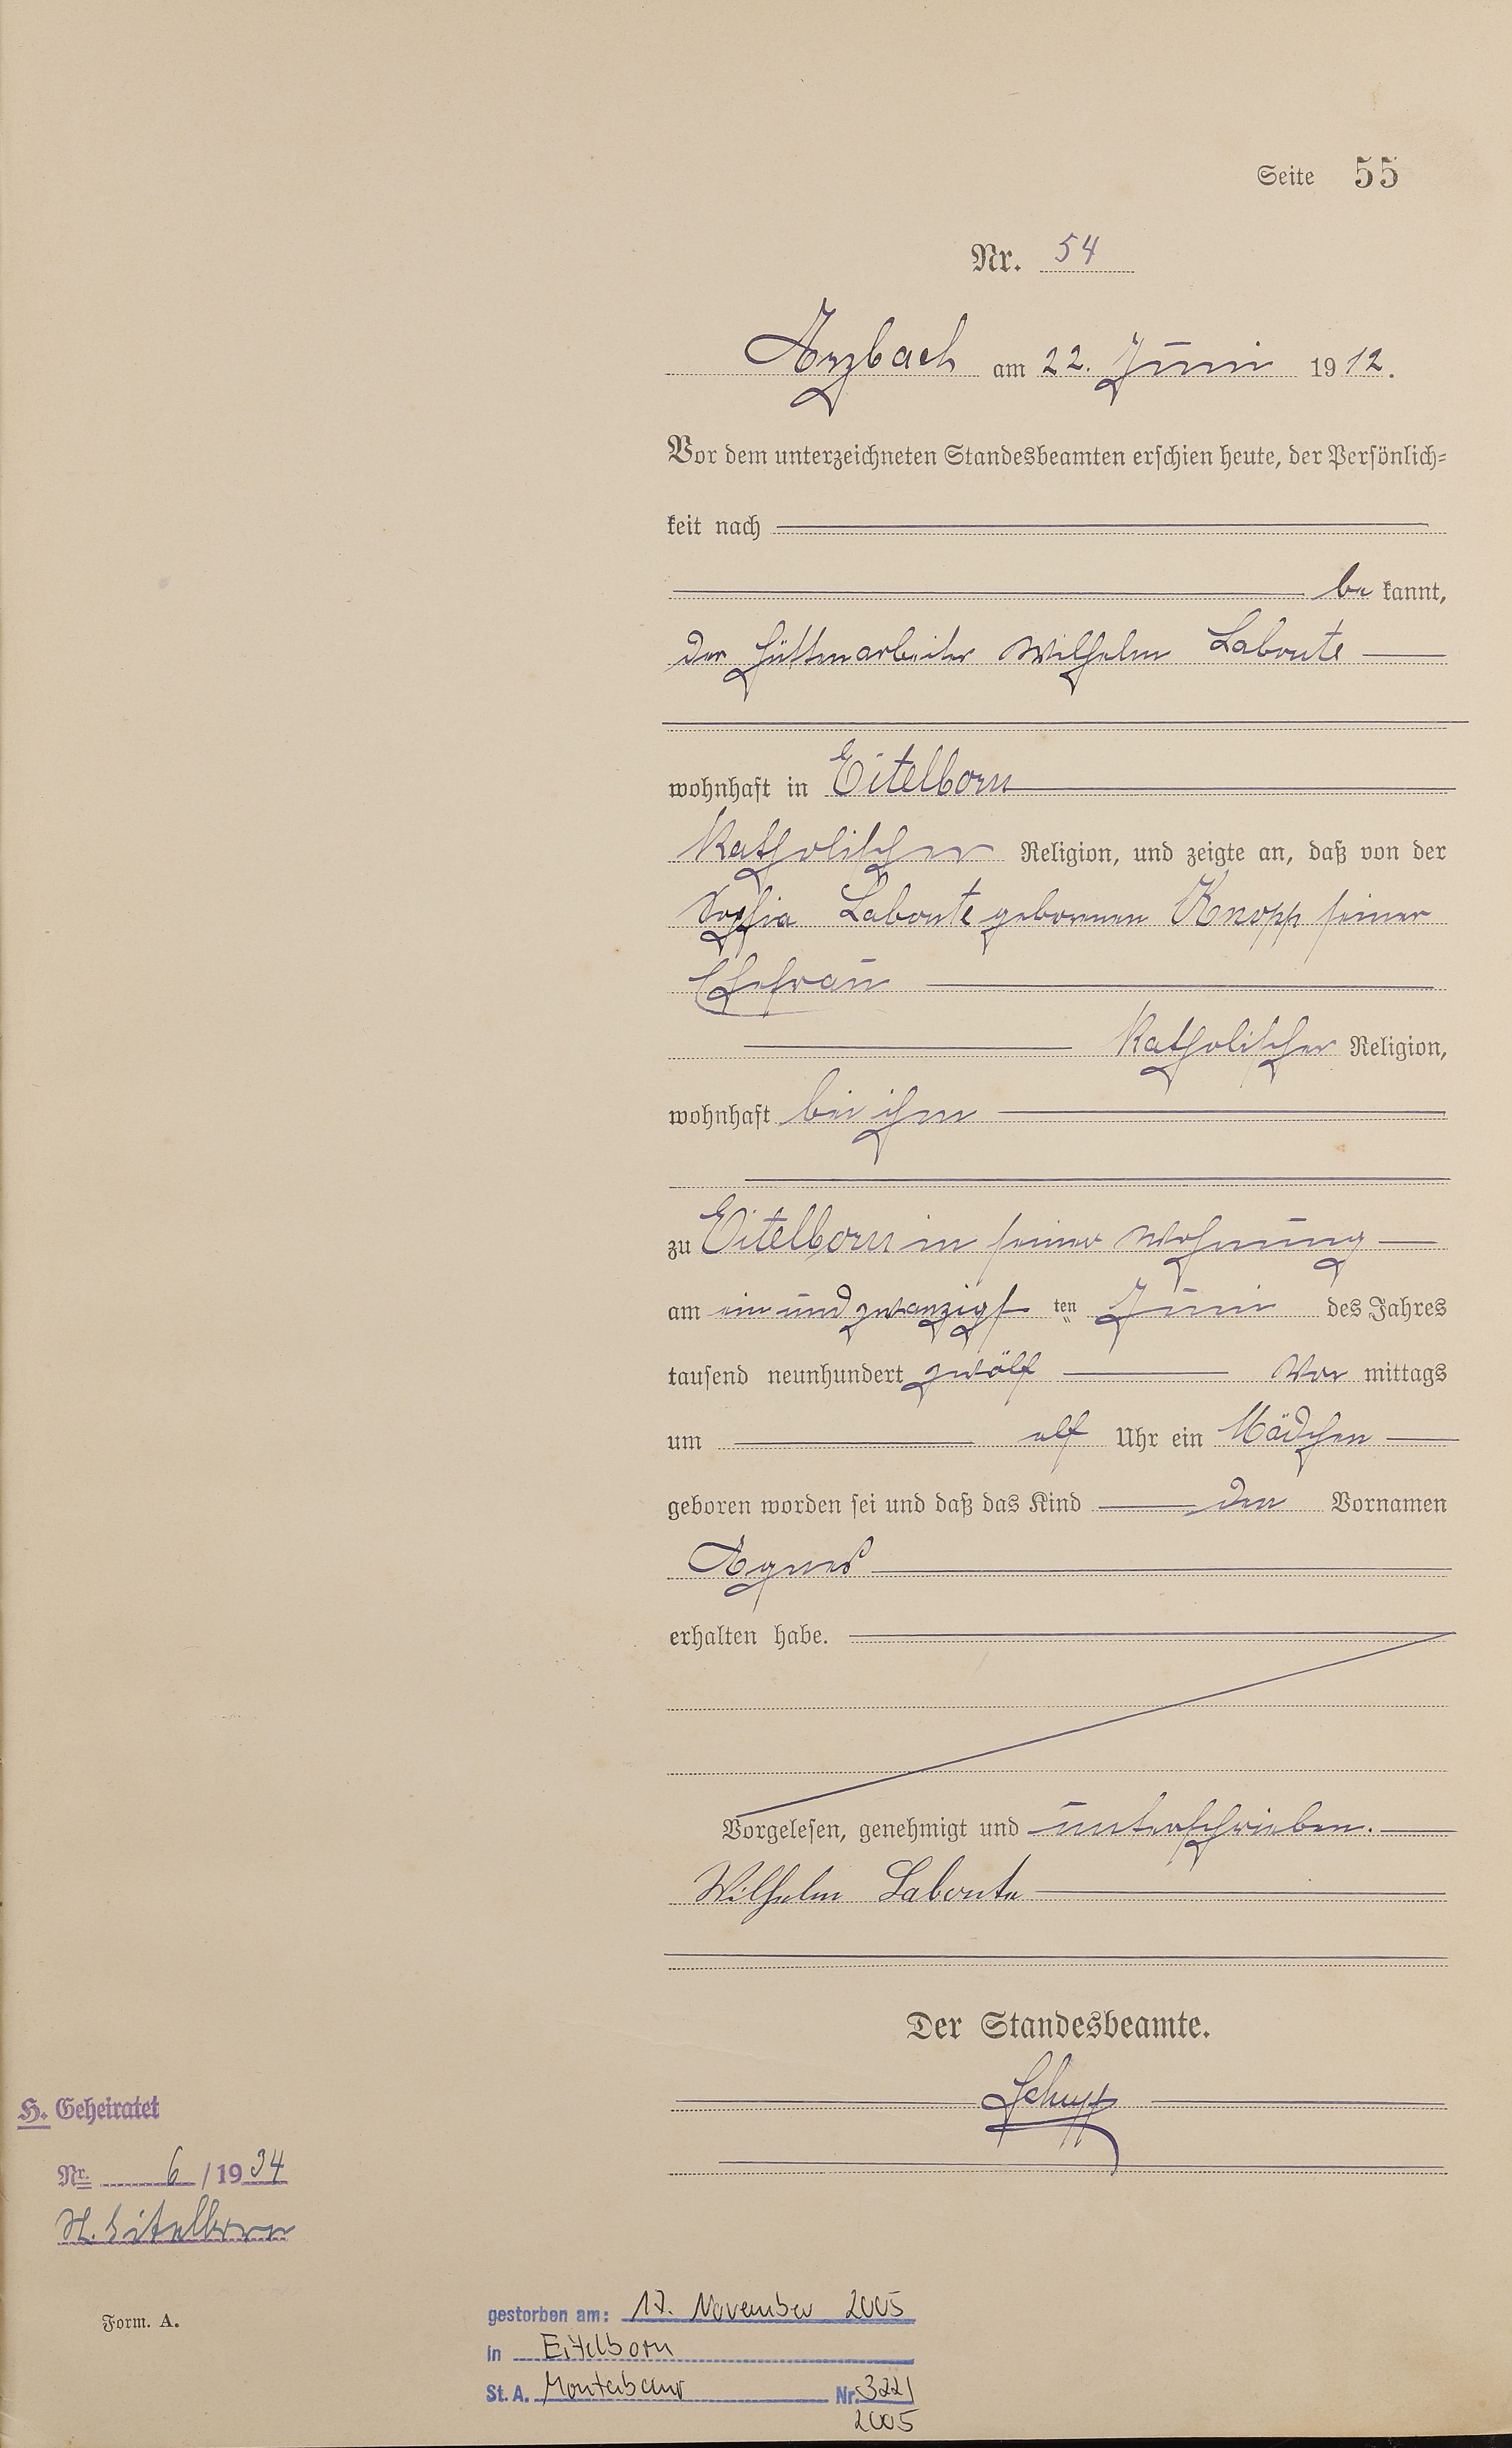 Seite 55
Nr. 54
Arzbach am 22. Juni 1912.
Vor dem unterzeichneten Standesbeamten erschien heute, der Persönlich-
keit nach
be kannt,
der Hüttenarbeiter Wilhelm Labonte
wohnhaft in Eitelborn
Katholischer Religion, und zeigte an, daß von der
Sophia Labonte gebornen Knopp seiner
Ehefrau
Katholischer Religion,
wohnhaft bei ihm
zu Eitelborn in seiner Wohnung
am ein und zwanzigs ten Juni des Jahres
tausend neunhundert zwölf Vor mittags
um elf Uhr ein Mädchen
geboren worden sei und daß das Kind den Vornamen
Agnes
erhalten habe.
Vorgelesen, genehmigt und unterschrieben.
Wilhelm Labonte
Der Standesbeamte.
Schupp
H. Geheiratet
Nr. 6 / 1934
St. Eitelborn
Form. A.
gestorben am: 17. November 2005
in Eitelborn
St. A. Montabaur Nr. 322/
2005